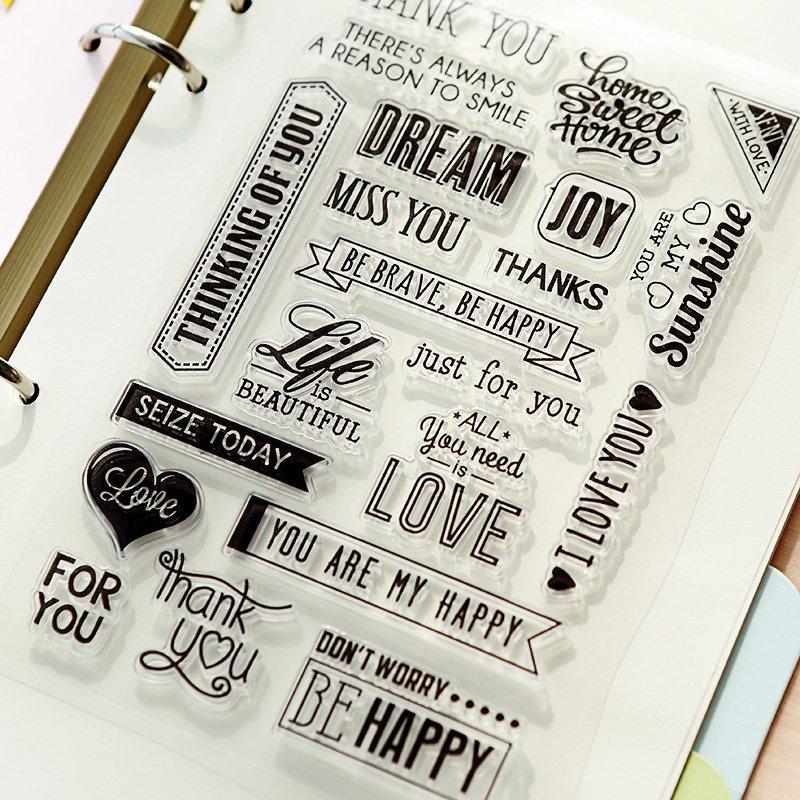 THANK YOU
THERE'S ALWAYS
A REASON TO SMILE
home
Sweet
Home
WITH LOVE
THINKING OF YOU
DREAM
JOY
MISS YOU
THANKS
YOU ARE
MY
Sunshine
BE BRAVE, BE HAPPY
Life
is
BEAUTIFUL
just for you
SEIZE TODAY
*ALL*
You need
is
LOVE
I LOVE YOU
Love
YOU ARE MY HAPPY
FOR
YOU
Thank
you
DON'T WORRY•••••
BE HAPPY